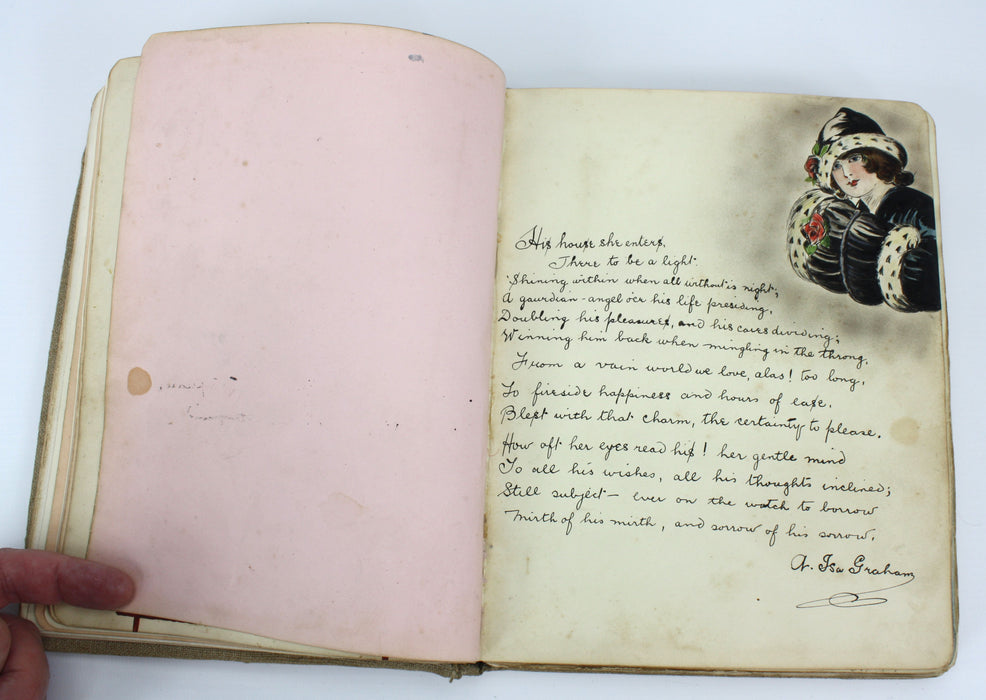 His house she enters,
There to be a light.
Shining within when all without is night;
A gaurdian-angel o'er his life presiding,
Doubling his pleasures, and his cares dividing;
Winning him back when mingling in the throng,
From a vain world we love, alas! too long,
To fireside happiness and hours of ease,
Blest with that charm, the certainty to please.
How oft her eyes read his! her gentle mind
To all his wishes, all his thoughts inclined;
Still subject— ever on the watch to borrow
Mirth of his mirth, and sorrow of his sorrow.
A. Isa Graham